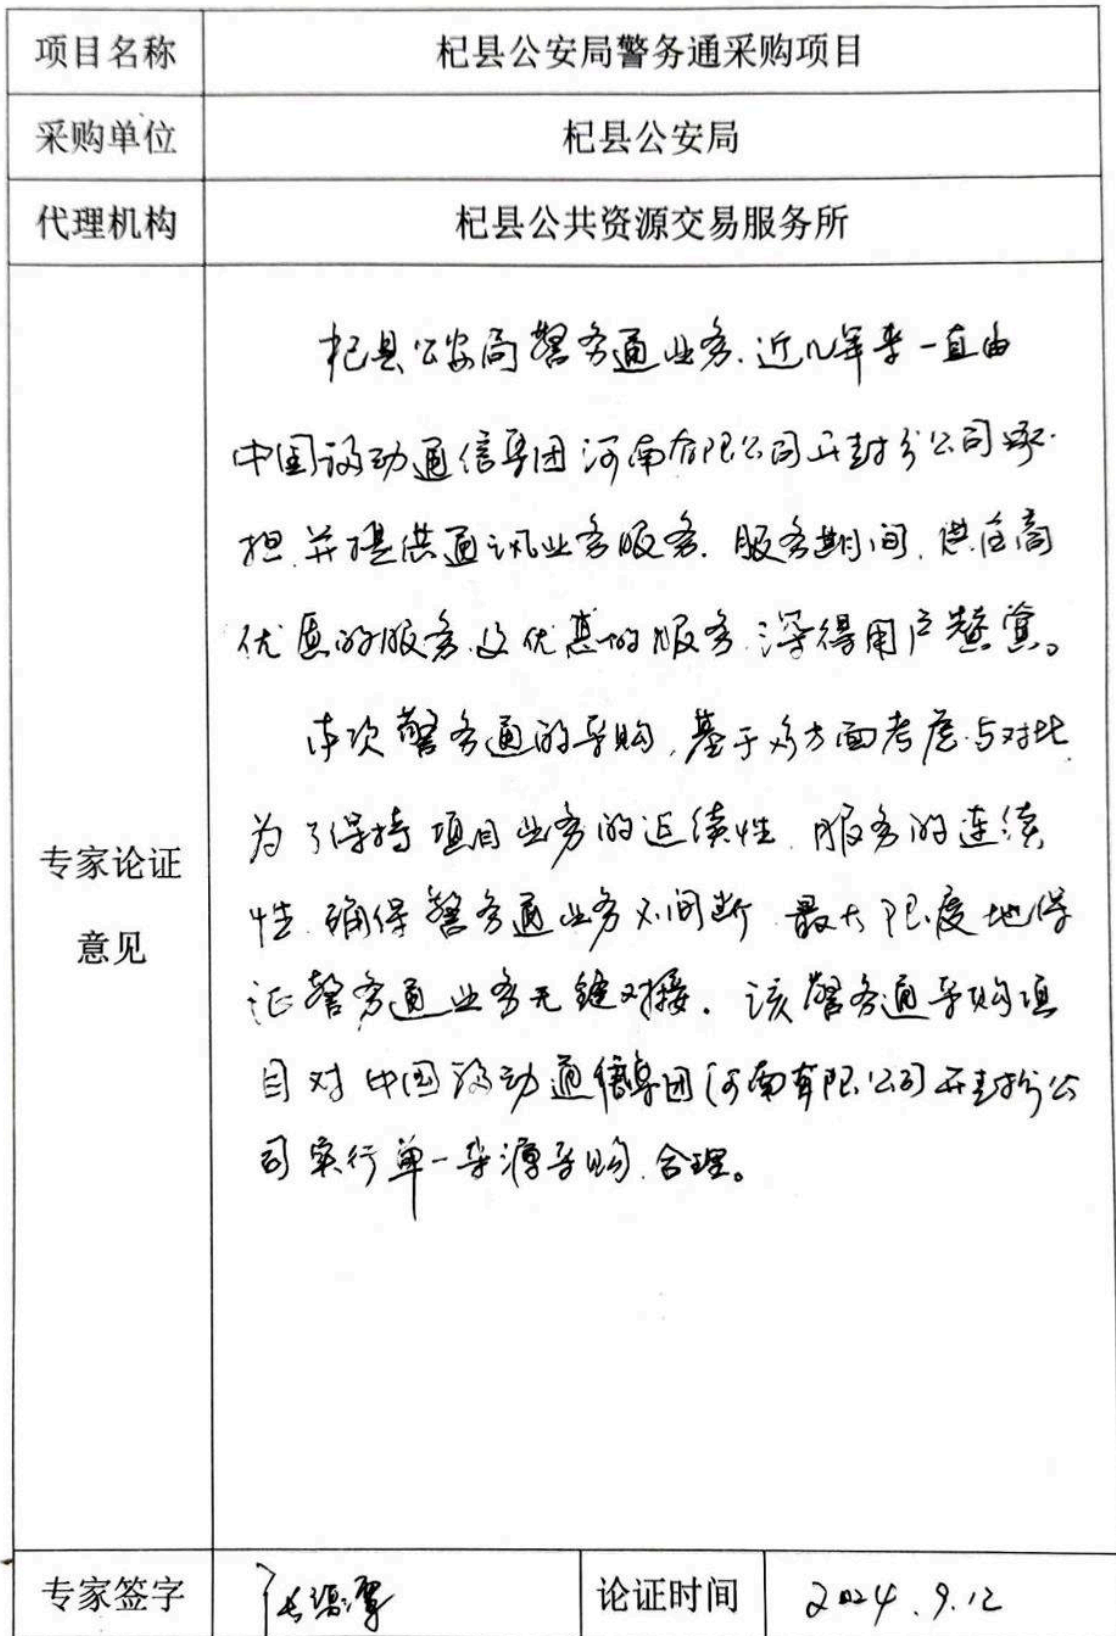 项目名称 杞县公安局警务通采购项目
采购单位 杞县公安局
代理机构 杞县公共资源交易服务所
专家论证意见
杞县公安局警务通业务.近几年来一直由
中国移动通信集团河南有限公司开封分公司承
担.并提供通讯业务服务.服务期间,供应商
优质的服务及优惠的服务.深得用户赞赏。
本次警务通的采购,基于多方面考虑与对比
为了保持项目业务的延续性.服务的连续
性.确保警务通业务不间断.最大限度地保
证警务通业务无缝对接.该警务通采购项
目对中国移动通信集团河南有限公司开封分公
司实行单一来源采购.合理。
专家签字 论证时间 2024.9.12